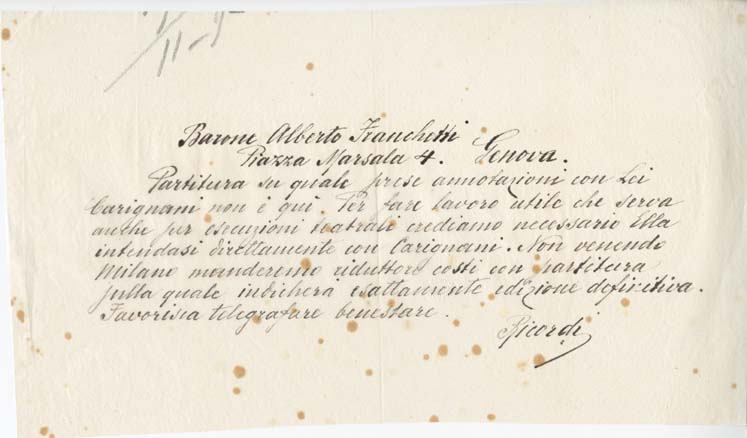 11-5
Barone Alberto Franchetti
Piazza Marsala 4. Genova.
Partitura su quale prese annotazioni con Lei
Carignani non è qui. Per fare lavoro utile che serva
anche per esecuzioni teatrali crediamo necessario Ella
intendasi direttamente con Carignani. Non venendo
Milano manderemo riduttore costì con partitura
sulla quale indicherà esattamente edizione definitiva.
Favorisca telegrafare benestare.
Ricordi